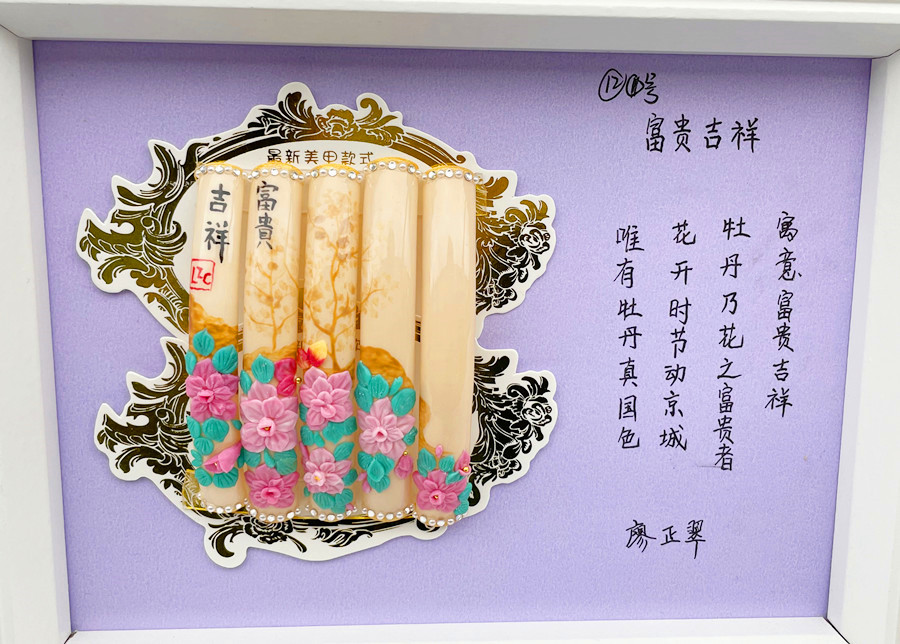 ⑫号
富贵吉祥
寓意富贵吉祥
牡丹乃花之富贵者
花开时节动京城
唯有牡丹真国色
廖正翠
最新美甲款式
富貴
吉祥
LZC